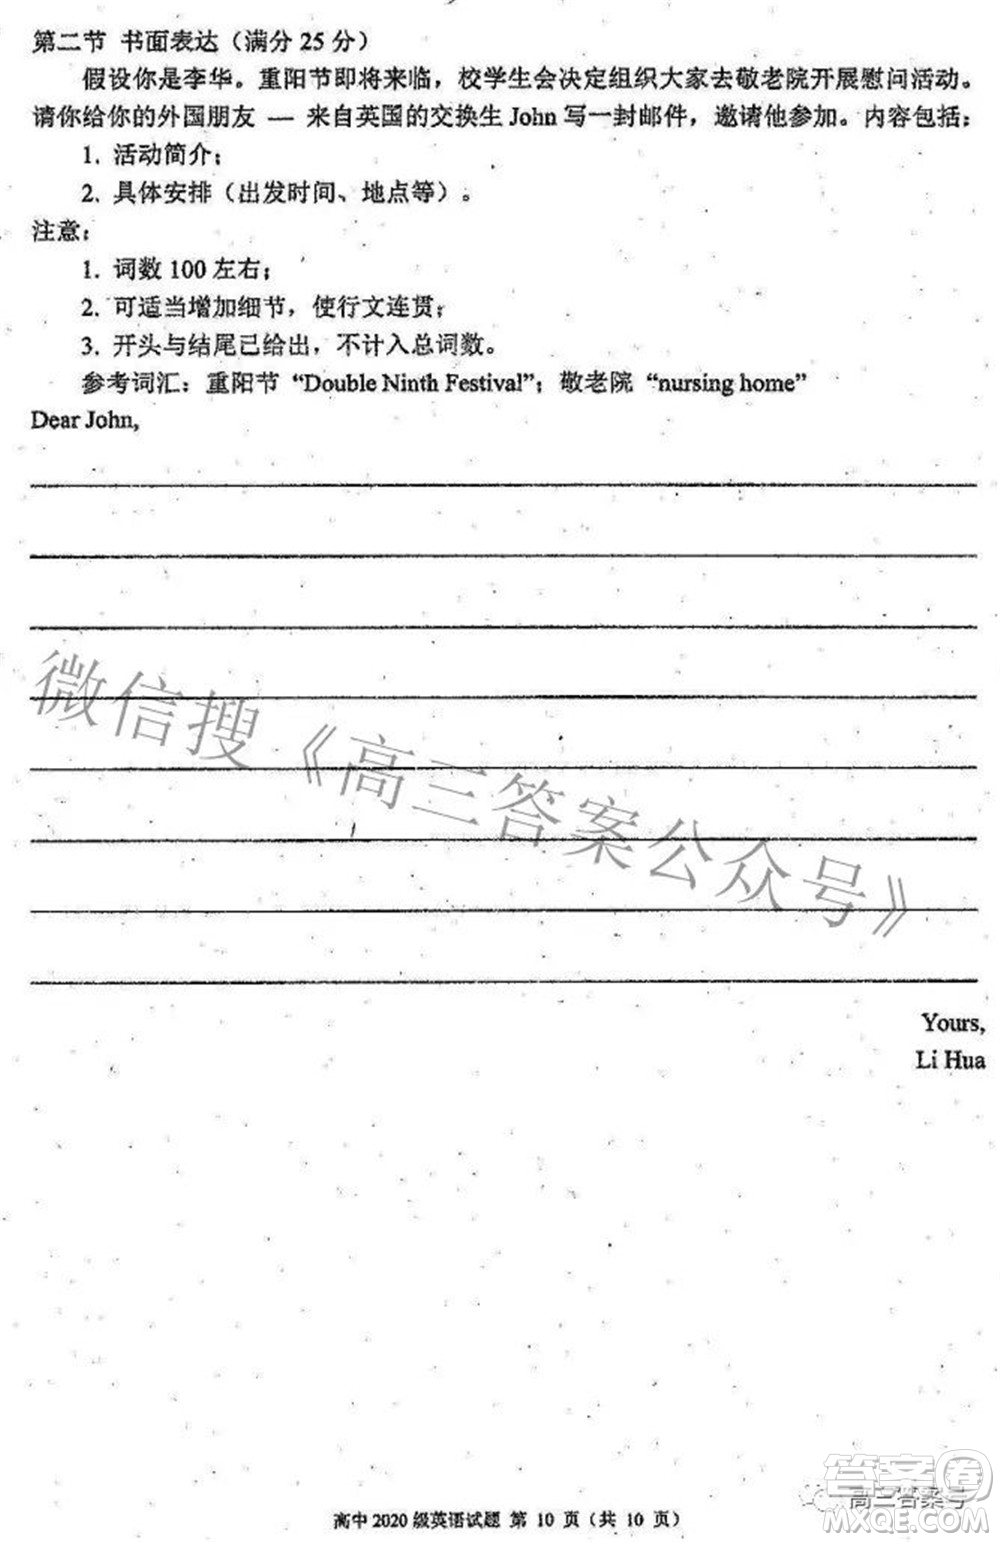 第二节 书面表达（满分 25 分）
假设你是李华。重阳节即将来临，校学生会决定组织大家去敬老院开展慰问活动。
请你给你的外国朋友 — 来自英国的交换生 John 写一封邮件，邀请他参加。内容包括：
1. 活动简介；
2. 具体安排（出发时间、地点等）。
注意：
1. 词数 100 左右；
2. 可适当增加细节，使行文连贯；
3. 开头与结尾已给出，不计入总词数。
参考词汇：重阳节 “Double Ninth Festival”；敬老院 “nursing home”
Dear John,
微信搜《高三答案公众号》
Yours,
Li Hua
答案圈
高三答案号
MXQE.COM
高中 2020 级英语试题 第 10 页（共 10 页）